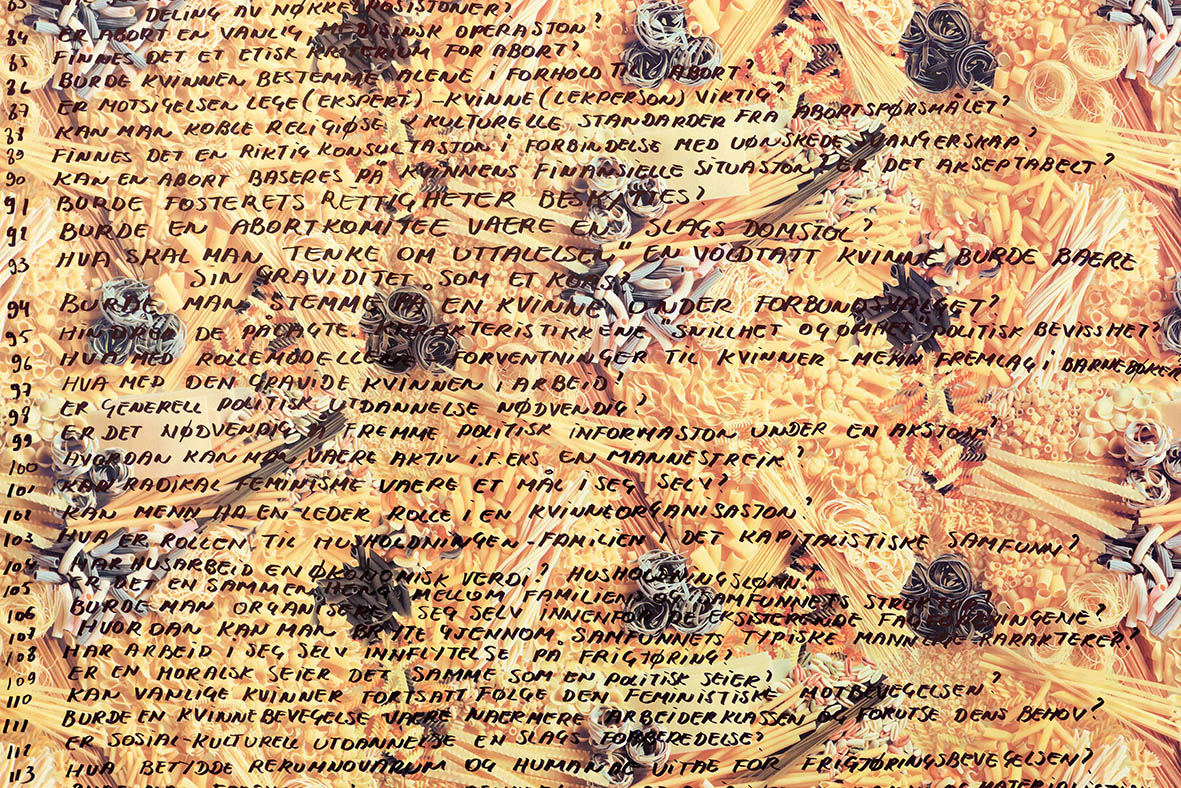 83 DELING AV NØKKELPOSISTONER?
84 ER ABORT EN VANLIG MEDISINSK OPERASJON?
85 FINNES DET ET ETISK KRITERIUM FOR ABORT?
86 BURDE KVINNEN BESTEMME ALENE I FORHOLD TIL ABORT?
87 ER MOTSIGELSEN LEGE (EKSPERT) - KVINNE (LEKPERSON) VIKTIG?
88 KAN MAN KOBLE RELIGIØSE / KULTURELLE STANDARDER FRA ABORTSPØRSMÅLET?
89 FINNES DET EN RIKTIG KONSULTASJON I FORBINDELSE MED UØNSKEDE SVANGERSKAP?
90 KAN EN ABORT BASERES PÅ KVINNENS FINANSIELLE SITUASJON? ER DET AKSEPTABELT?
91 BURDE FOSTERETS RETTIGHETER BESKYTTES?
92 BURDE EN ABORTKOMITEE VAERE EN SLAGS DOMSTOL?
93 HVA SKAL MAN TENKE OM UTTALELSEN "EN VOLDTATT KVINNE BURDE BAERE
SIN GRAVIDITET SOM ET KORS"?
94 BURDE MAN STEMME PÅ EN KVINNE UNDER FORBUNDSVALGET?
95 HINDRER DE PÅDAGTE KARAKTERISTIKKENE "SNILLHET OG ØMHET" POLITISK BEVISSHET?
96 HVA MED ROLLEMODELLENE FORVENTNINGER TIL KVINNER - MENN FREMLAG I BARNEBØKER?
97 HVA MED DEN GRAVIDE KVINNEN I ARBEID?
98 ER GENERELL POLITISK UTDANNELSE NØDVENDIG?
99 ER DET NØDVENDIG Å FREMME POLITISK INFORMASJON UNDER EN AKSJON?
100 HVORDAN KAN MAN VAERE AKTIV I F.EKS EN MANNESTREIK?
101 KAN RADIKAL FEMINISME VAERE ET MÅL I SEG SELV?
102 KAN MENN HA EN LEDER ROLLE I EN KVINNEORGANISASJON?
103 HVA ER ROLLEN TIL HUSHOLDNINGEN - FAMILIEN I DET KAPITALISTISKE SAMFUNN?
104 HAR HUSARBEID EN ØKONOMISK VERDI? HUSHOLDNINGSLØNN?
105 ER DET EN SAMMENHENG MELLOM FAMILIEN SAMFUNNETS
106 BURDE MAN ORGANISERE SEG SELV INNENFOR DE EKSISTERENDE FAGFORENINGENE?
107 HVORDAN KAN MAN BRYTE GJENNOM SAMFUNNETS TYPISKE MANNLIGE KARAKTERER?
108 HAR ARBEID I SEG SELV INNFLYTELSE PÅ FRIGJØRING?
109 ER EN MORALSK SEIER DET SAMME SOM EN POLITISK SEIER?
110 KAN VANLIGE KVINNER FORTSATT FØLGE DEN FEMINISTISKE MOTBEVEGELSEN?
111 BURDE EN KVINNEBEVEGELSE VAERE NAERMERE ARBEIDERKLASSEN OG FORUTSE DENS BEHOV?
112 ER SOSIAL-KULTURELL UTDANNELSE EN SLAGS FORBEREDELSE?
113 HVA BETYDDE RERUMNOVARUM OG HUMANAE VITAE FOR FRIGJØRINGSBEVEGELSEN?